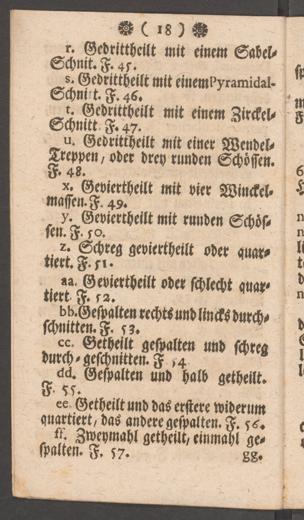 ( 18 )
r. Gedrittheilt mit einem Sabel-
Schnit. F. 45.
s. Gedrittheilt mit einem Pyramidal-
Schnitt. F. 46.
t. Gedrittheilt mit einem Zirckel-
Schnitt F. 47.
u. Gedrittheilt mit einer Wendel-
Treppen, oder drey runden Schössen.
F. 48.
x. Geviertheilt mit vier Winckel-
massen. F. 49.
y. Geviertheilt mit runden Schös-
sen. F. 50.
z. Schreg geviertheilt oder quar-
tiert. F. 51.
aa. Geviertheilt oder schlecht quar-
tiert F. 52.
bb. Gespalten rechts und lincks durch-
schnitten. F. 53.
cc. Getheilt gespalten und schreg
durch-geschnitten. F 54
dd. Gespalten und halb getheilt.
F. 55.
ee. Getheilt und das erstere widerum
quartiert, das andere gespalten. F. 56.
ff. Zweymahl getheilt, einmahl ge-
spalten. F. 57.
gg.